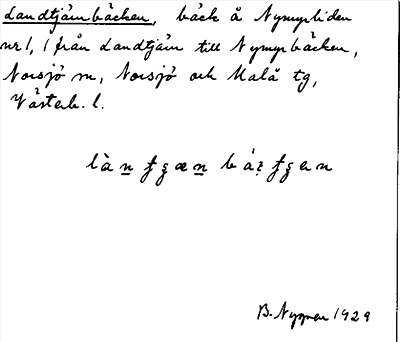 Landtjärnbäcken, bäck å Nymyrliden
nr 1, / från Landtjärn till Nymyrbäcken,
Norsjö sn, Norsjö och Malå tg,
Västerb. l.
B. Nygren 1929